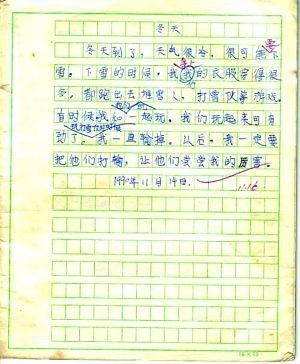 冬天
冬天到了，天气很冷，很可能下
雪。下雪的时候，我的衣服穿得很
多，都跑出去堆雪人，打雪仗等游戏。
有时候我们一起玩。我们玩起来可有
劲了。我一直输掉。以后，我一定要
把他们打输，让他们尝尝我的厉害。
1990年11月19日.